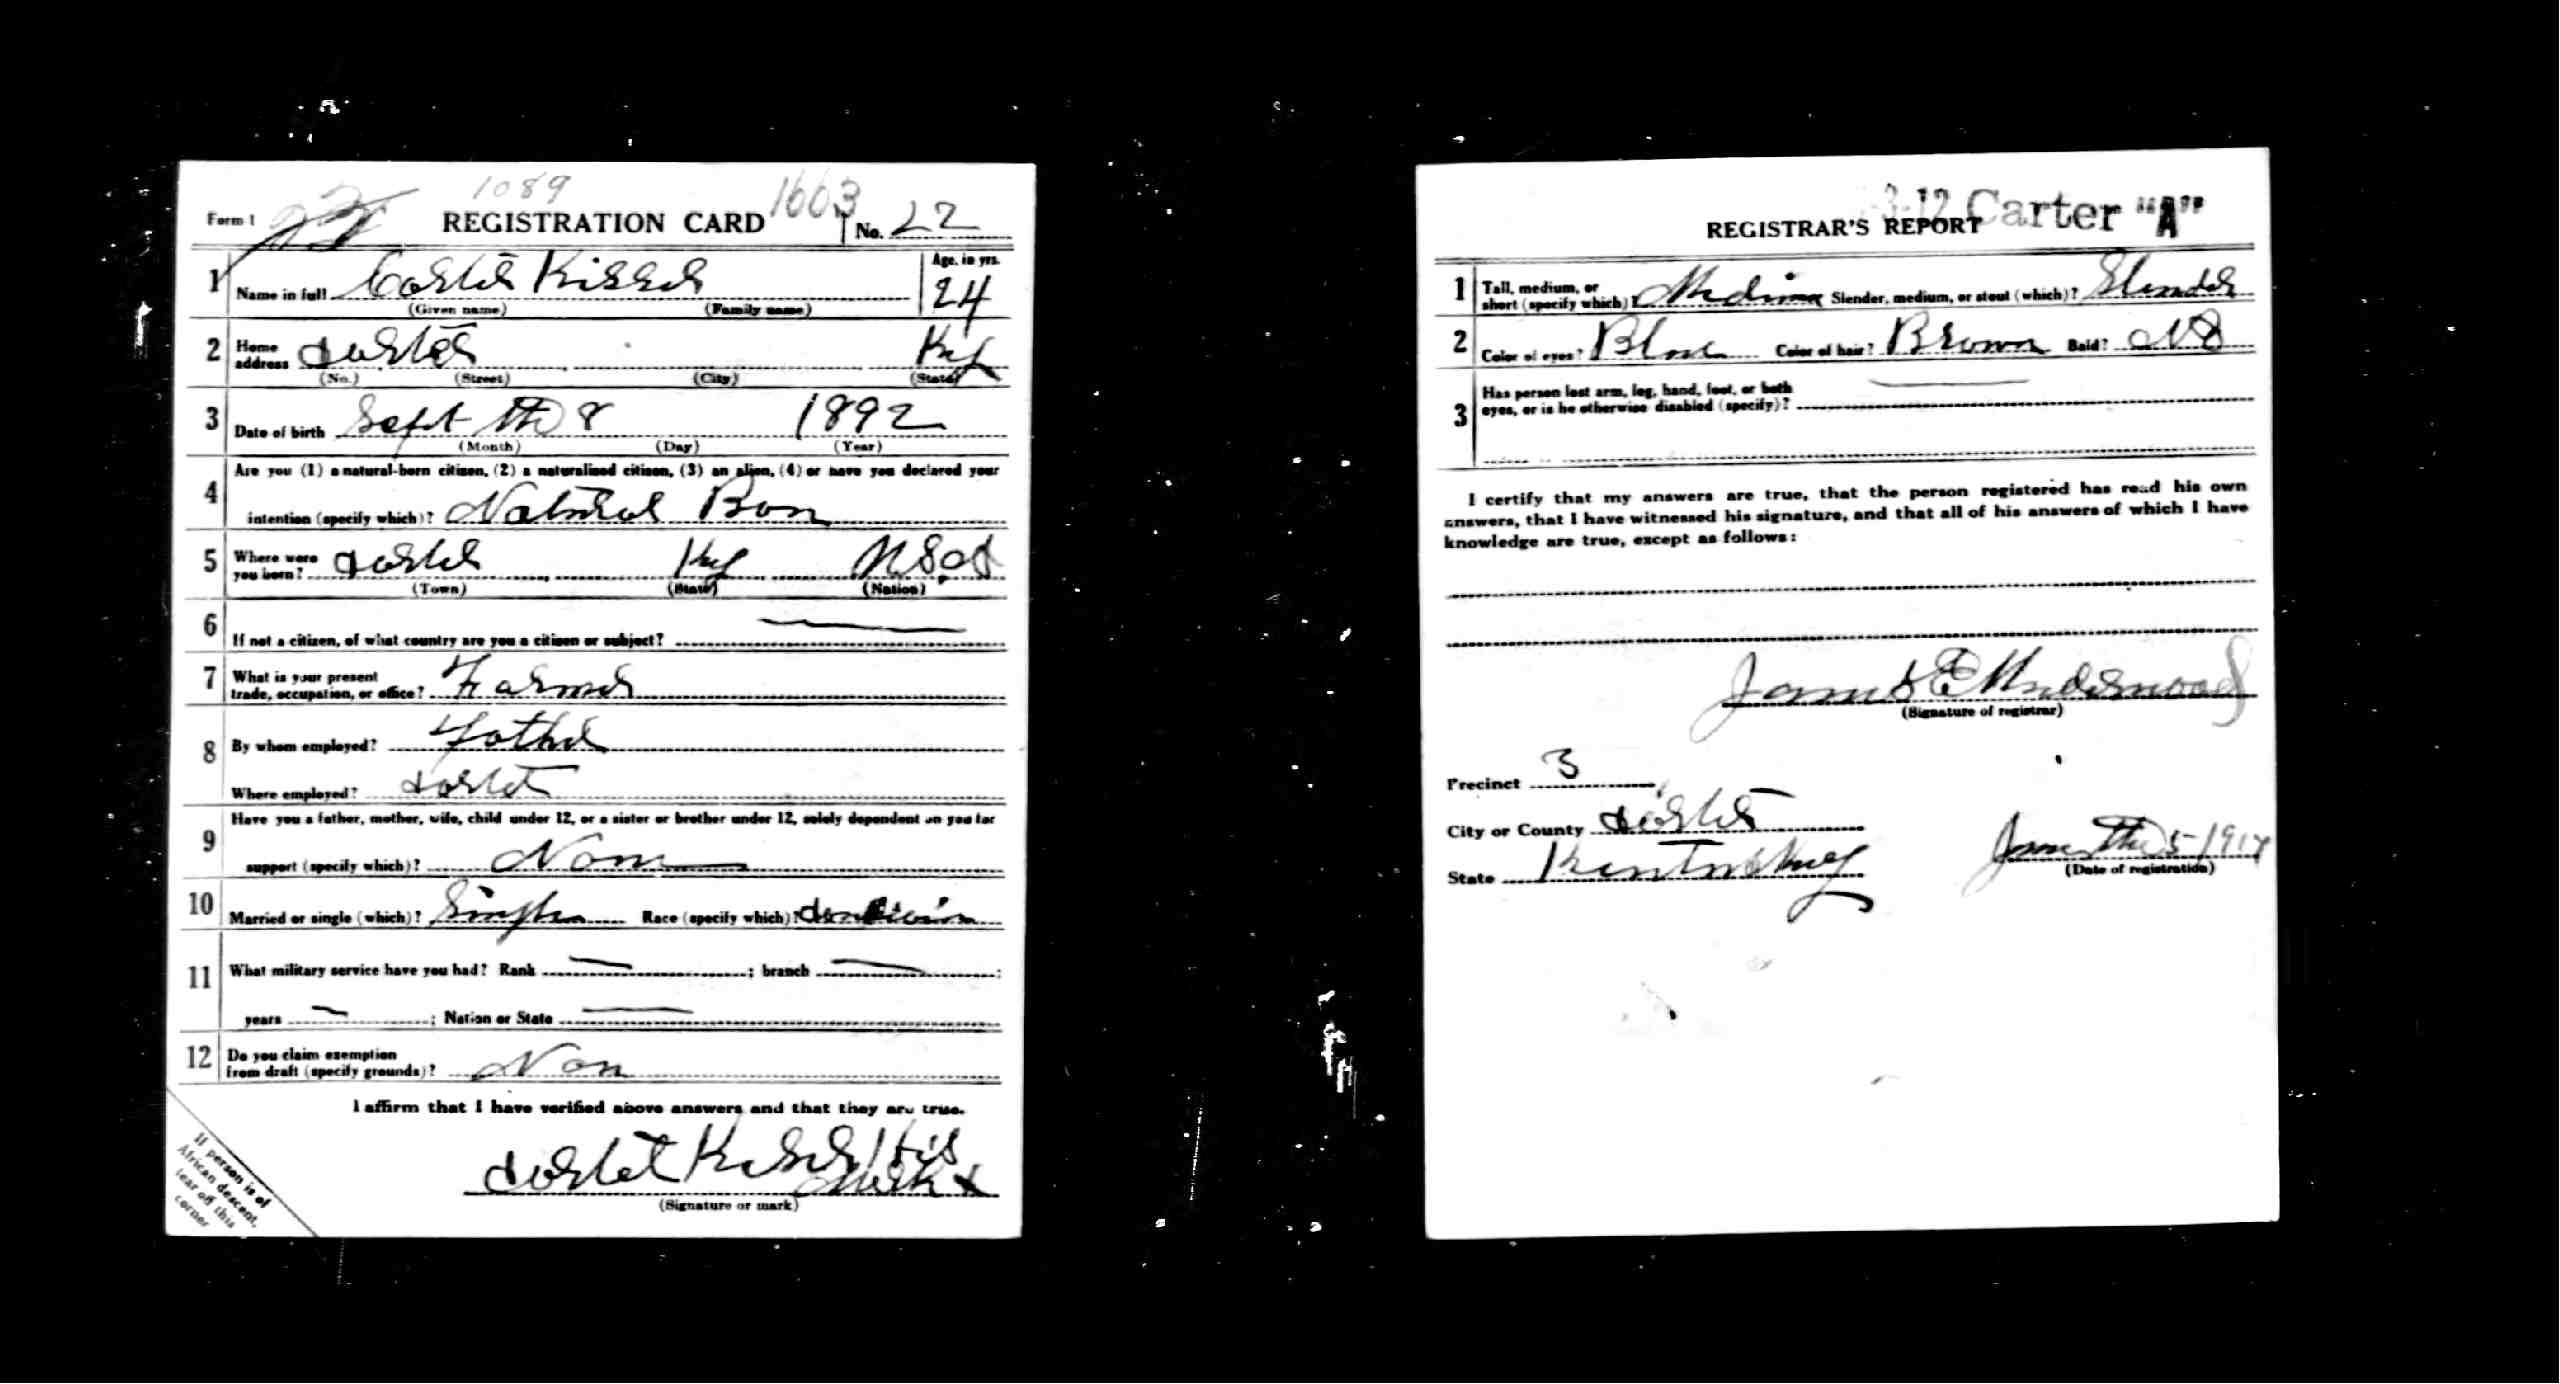 1089
Form 1 REGISTRATION CARD 1603 No. 22
1 Name in full Carter Kisser Age, in yrs. 24
(Given name) (Family name)
2 Home address Carter Ky
(No.) (Street) (City) (State)
3 Date of birth Sept the 8 1892
(Month) (Day) (Year)
4 Are you (1) a natural-born citizen, (2) a naturalized citizen, (3) an alien, (4) or have you declared your
intention (specify which)? Natural Born
5 Where were you born? Carter Ky USA
(Town) (State) (Nation)
6 If not a citizen, of what country are you a citizen or subject?
7 What is your present
trade, occupation, or office? Farmer
8 By whom employed? Father
Where employed? Carter
9 Have you a father, mother, wife, child under 12, or a sister or brother under 12, solely dependent on you for
support (specify which)? None
10 Married or single (which)? Single Race (specify which)?
11 What military service have you had? Rank ; branch ;
years ; Nation or State
12 Do you claim exemption
from draft (specify grounds)? Non
I affirm that I have verified above answers and that they are true.
Carter Kisser His
Mark x
(Signature or mark)
If person is of
African descent,
tear off this
corner
3-12 Carter "A"
REGISTRAR'S REPORT
1 Tall, medium, or
short (specify which)? Medium Slender, medium, or stout (which)? Slender
2 Color of eyes? Blue Color of hair? Brown Bald? No
3 Has person lost arm, leg, hand, foot, or both
eyes, or is he otherwise disabled (specify)?
I certify that my answers are true, that the person registered has read his own
answers, that I have witnessed his signature, and that all of his answers of which I have
knowledge are true, except as follows:
James E Underwood
(Signature of registrar)
Precinct 3
City or County Carter
State Kentucky June the 5-1917
(Date of registration)